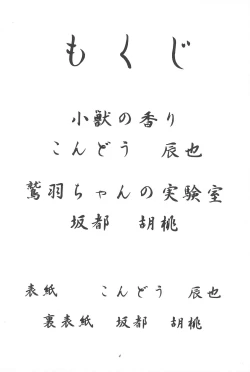 もくじ
小獣の香り
こんどう 辰也
鷲羽ちゃんの実験室
坂都 胡桃
表紙 こんどう 辰也
裏表紙 坂都 胡桃